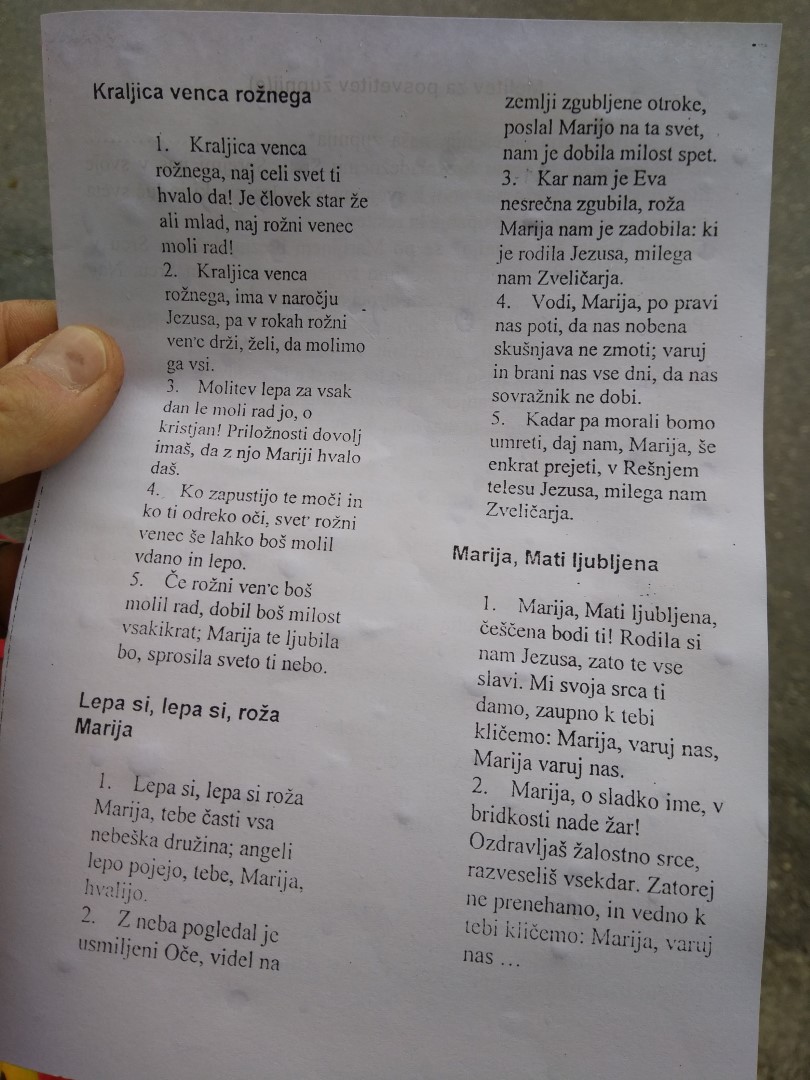 Kraljica venca rožnega
1. Kraljica venca
rožnega, naj celi svet ti
hvalo da! Je človek star že
ali mlad, naj rožni venec
moli rad!
2. Kraljica venca
rožnega, ima v naročju
Jezusa, pa v rokah rožni
ven'c drži, želi, da molimo
ga vsi.
3. Molitev lepa za vsak
dan le moli rad jo, o
kristjan! Priložnosti dovolj
imaš, da z njo Mariji hvalo
daš.
4. Ko zapustijo te moči in
ko ti odreko oči, svet' rožni
venec še lahko boš molil
vdano in lepo.
5. Če rožni ven'c boš
molil rad, dobil boš milost
vsakikrat; Marija te ljubila
bo, sprosila sveto ti nebo.
Lepa si, lepa si, roža
Marija
1. Lepa si, lepa si roža
Marija, tebe časti vsa
nebeška družina; angeli
lepo pojejo, tebe, Marija,
hvalijo.
2. Z neba pogledal je
usmiljeni Oče, videl na
zemlji zgubljene otroke,
poslal Marijo na ta svet,
nam je dobila milost spet.
3. Kar nam je Eva
nesrečna zgubila, roža
Marija nam je zadobila: ki
je rodila Jezusa, milega
nam Zveličarja.
4. Vodi, Marija, po pravi
nas poti, da nas nobena
skušnjava ne zmoti; varuj
in brani nas vse dni, da nas
sovražnik ne dobi.
5. Kadar pa morali bomo
umreti, daj nam, Marija, še
enkrat prejeti, v Rešnjem
telesu Jezusa, milega nam
Zveličarja.
Marija, Mati ljubljena
1. Marija, Mati ljubljena,
češčena bodi ti! Rodila si
nam Jezusa, zato te vse
slavi. Mi svoja srca ti
damo, zaupno k tebi
kličemo: Marija, varuj nas,
Marija varuj nas.
2. Marija, o sladko ime, v
bridkosti nade žar!
Ozdravljaš žalostno srce,
razveseliš vsekdar. Zatorej
ne prenehamo, in vedno k
tebi kličemo: Marija, varuj
nas ...